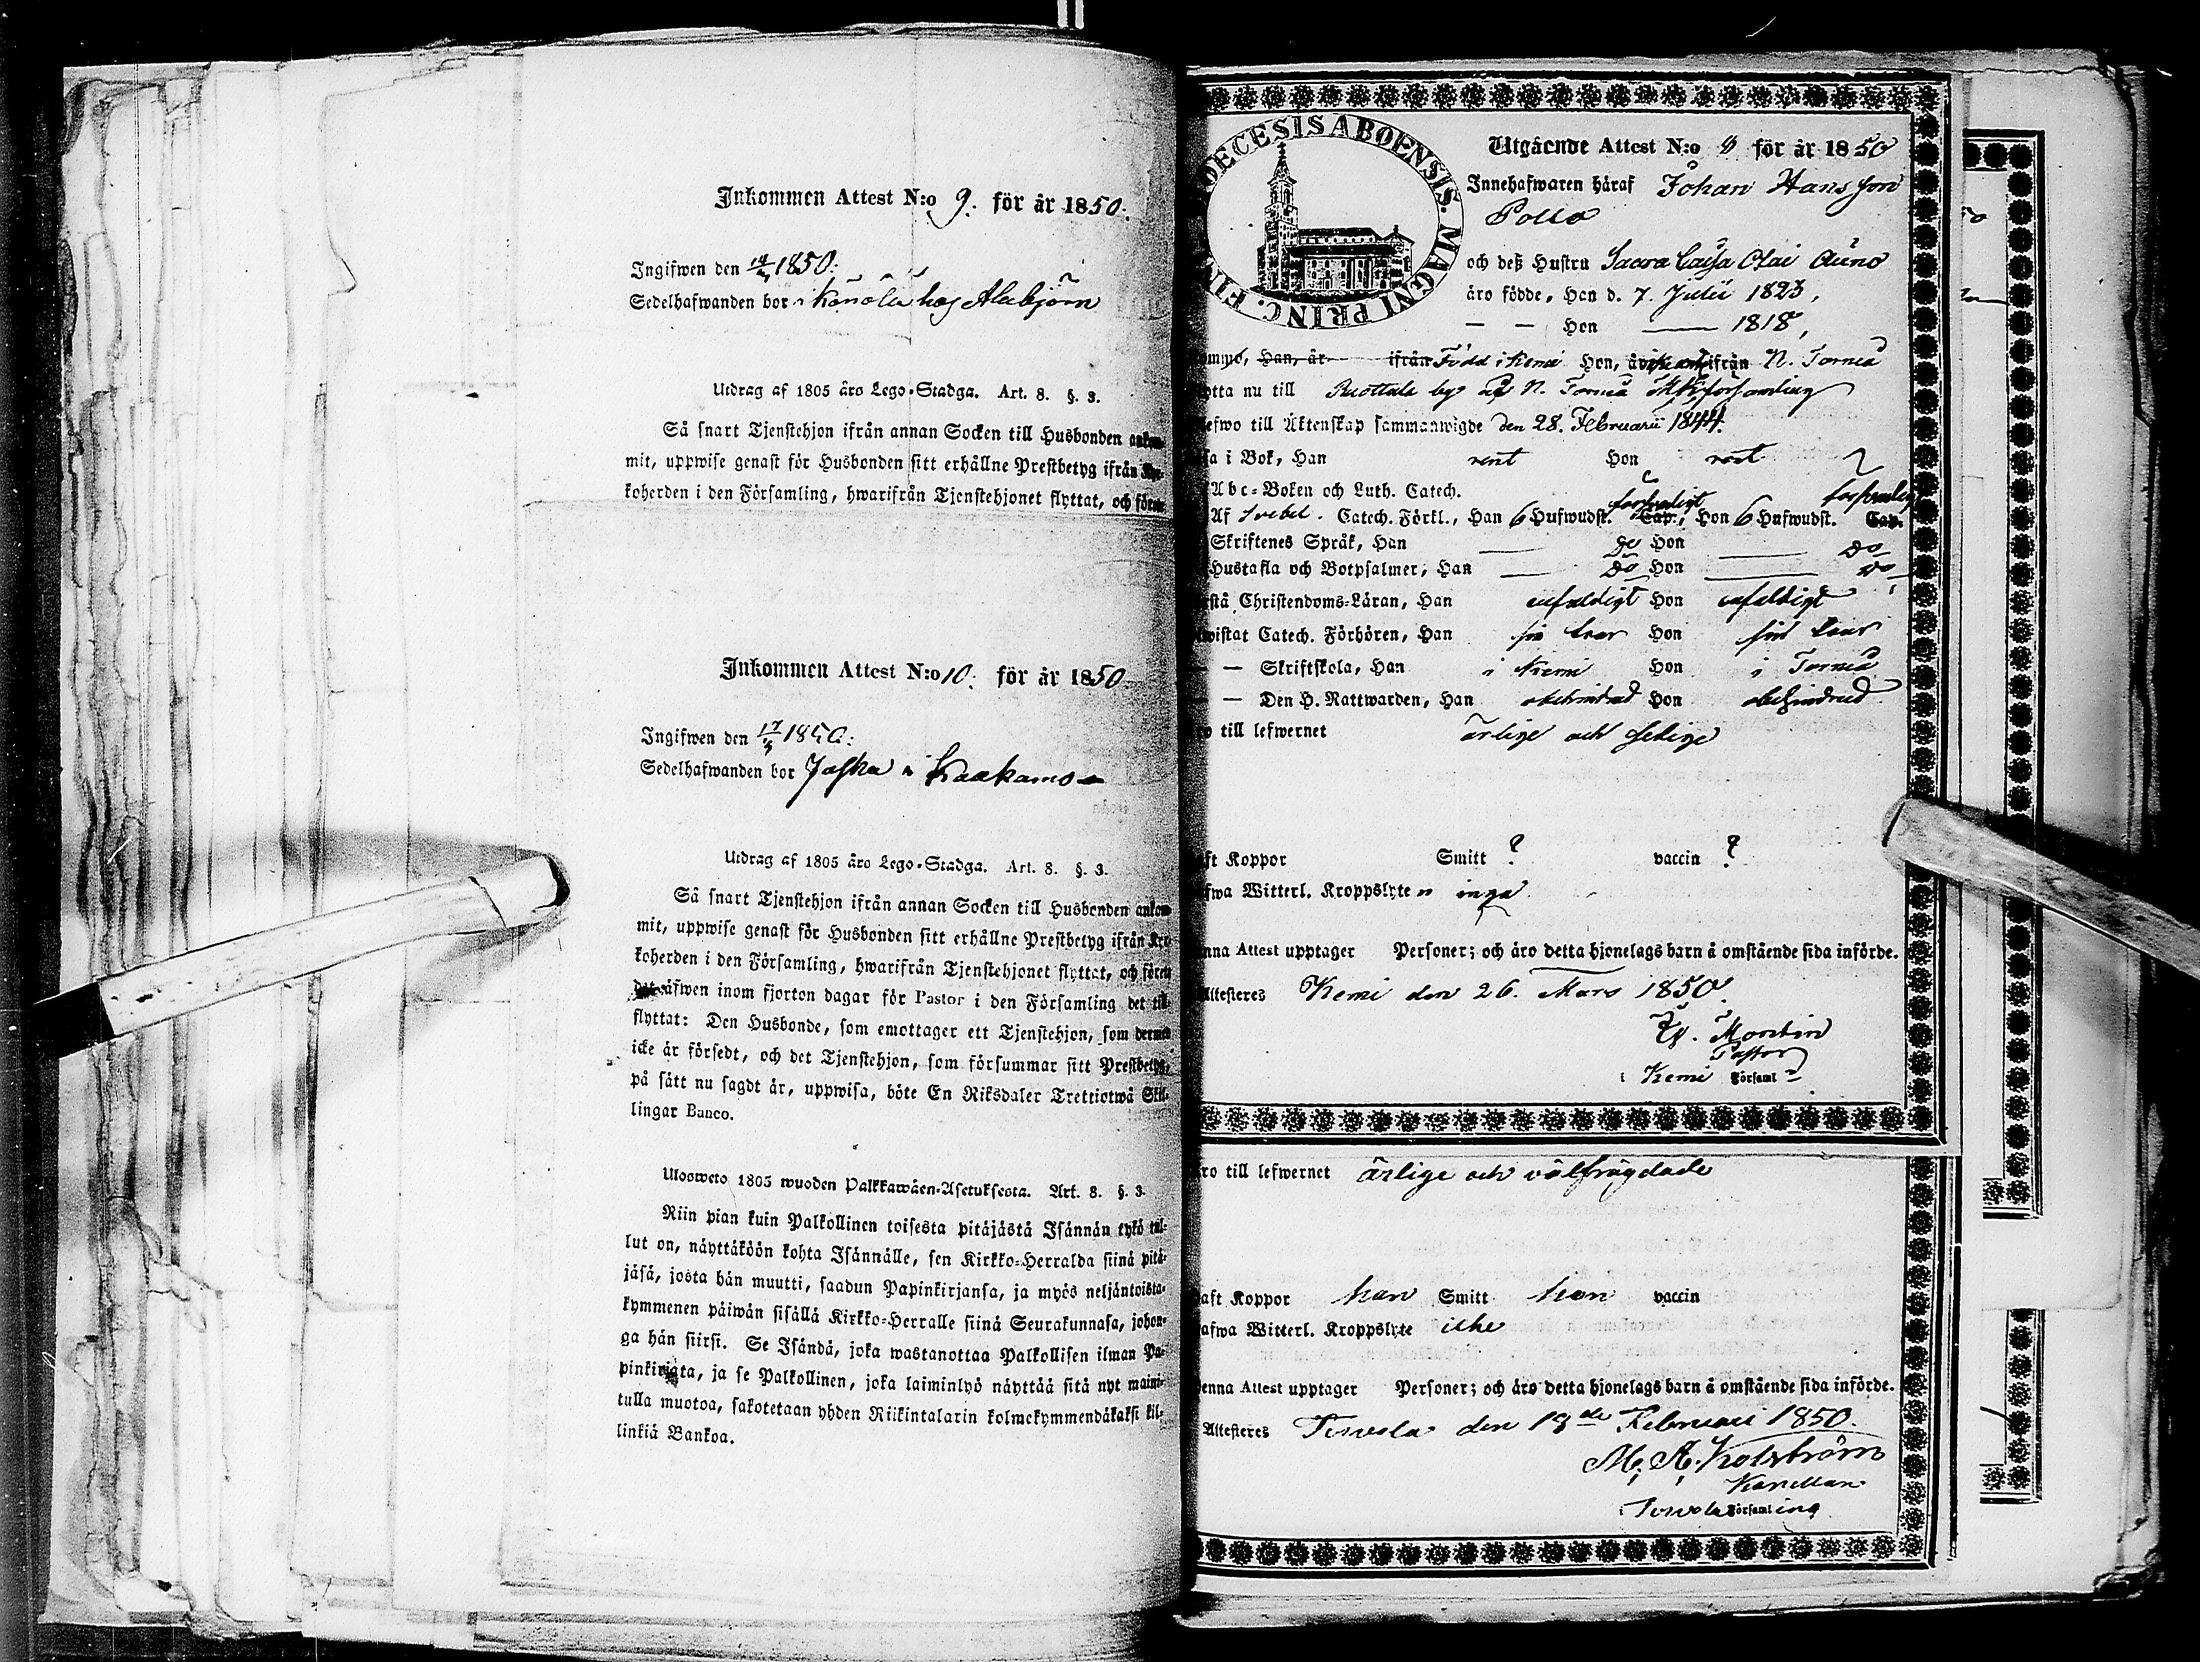 Inkommen Attest N:o 9. för år 1850.
Ingifwen den 1850.
Sedelhafwanden bor i hos Alabjörn
Utdrag af 1805 års Lego-Stadga. Art. 8. §. 3.
Så snart Tjenstehjon ifrån annan Socken till Husbonden ankom-
mit, uppwise genast för Husbonden sitt erhållne Prestbetyg ifrån Kyr-
koherden i den Församling, hwarifrån Tjenstehjonet flyttat, och förete
Inkommen Attest N:o 10. för år 1850
Ingifwen den 17/4 1850.
Sedelhafwanden bor Jaska i Kaakamo
Utdrag af 1805 års Lego-Stadga. Art. 8. §. 3.
Så snart Tjenstehjon ifrån annan Socken till Husbonden ankom-
mit, uppwise genast för Husbonden sitt erhållne Prestbetyg ifrån Kyr-
koherden i den Församling, hwarifrån Tjenstehjonet flyttat, och förete
det äfwen inom fjorton dagar för Pastor i den Församling det till-
flyttat: Den Husbonde, som emottager ett Tjenstehjon, som dermed
icke är försedt, och det Tjenstehjon, som försummar sitt Prestbetyg,
på sätt nu sagdt är, uppwisa, böte En Riksdaler Trettiotwå Skil-
lingar Banco.
Ulosweto 1805 wuoden Palkkawäen-Asetuksesta. Art. 8. §. 3.
Niin pian kuin Palkollinen toisesta pitäjästä Isännän tykö tul-
lut on, näyttäköön kohta Isännälle, sen Kirkko-Herralda siinä pitä-
jäsä, josta hän muutti, saadun Papinkirjansa, ja myös neljäntoista-
kymmenen päiwän sisällä Kirkko-Herralle siinä Seurakunnasa, johon-
ga hän siirsi. Se Isändä, joka wastanottaa Palkollisen ilman Pa-
pinkirjata, ja se Palkollinen, joka laiminlyö näyttää sitä nyt maini-
tulla muotoa, sakotetaan yhden Riikintalarin kolmekymmendäkaksi kil-
linkiä Bankoa.
OECESIS ABOENSIS. MAGNI PRINC. FIN
Utgående Attest N:o för år 1850
Innehafwaren häraf Johan Hansson
Pollo
och deß Hustru Saara Caisa Olai Auno
äro födde, Han d. 7. Julii 1823,
— — Hon — 1818,
Han, är ifrån Född i Kemi Hon, ifrån N. Torneå
otta nu till Ruottala by af N. Torneå
efwo till Äktenskap sammanwigde den 28. Februarii 1844.
sa i Bok, Han rent Hon rent
Abc-Boken och Luth. Catech.
Af Svebel. Catech. Förkl., Han 6 Hufwudst. försvarligt Cap., Hon 6 Hufwudst. försvarligt Cap.
Skriftenes Språk, Han — Do Hon — Do
Hustafla och Botpsalmer, Han — Do Hon — Do
rstå Christendoms-Läran, Han enfaldigt Hon enfaldigt
wistat Catech. Förhören, Han Hon
— — Skriftskola, Han i Kemi Hon i Torneå
— — Den H. Nattwarden, Han obehindrad Hon obehindrad
ro till lefwernet ärlige och sedige
aft Koppor Smitt ? vaccin ?
afwa Witterl. Kroppslyten inga
enna Attest upptager Personer; och äro detta hjonelags barn å omstående sida införde.
Attesteres Kemi den 26. Mars 1850.
Montin
Pastor
i Kemi Församl
ro till lefwernet ärlige och välfrägdade
aft Koppor han Smitt hon vaccin
afwa Witterl. Kroppslyte icke
enna Attest upptager Personer; och äro detta hjonelags barn å omstående sida införde.
Attesteres Terwola den 19de Februari 1850.
M. A. Holström
Kapellan
i Terwola Församling